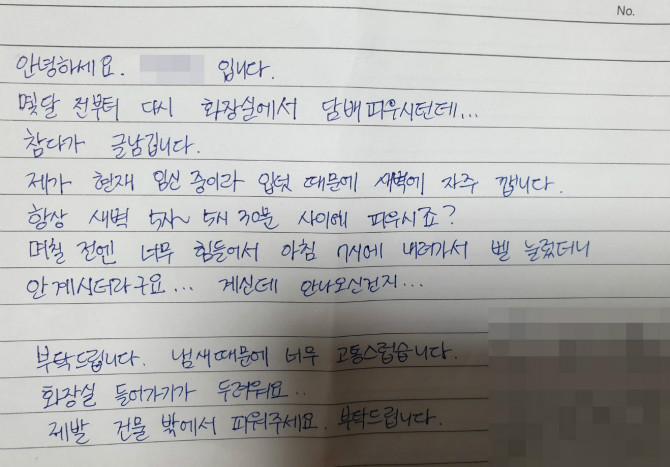 No.
안녕하세요. 입니다.
몇달 전부터 다시 화장실에서 담배피우시던데...
참다가 글남깁니다.
제가 현재 임신 중이라 입덧 때문에 새벽에 자주 깹니다.
항상 새벽 5시~ 5시 30분 사이에 피우시죠?
며칠 전엔 너무 힘들어서 아침 7시에 내려가서 벨 눌렀더니
안계시더라구요... 계신데 안나오신건지...
부탁드립니다. 냄새때문에 너무 고통스럽습니다.
화장실 들어가기가 두려워요..
제발 건물 밖에서 피워주세요. 부탁드립니다.